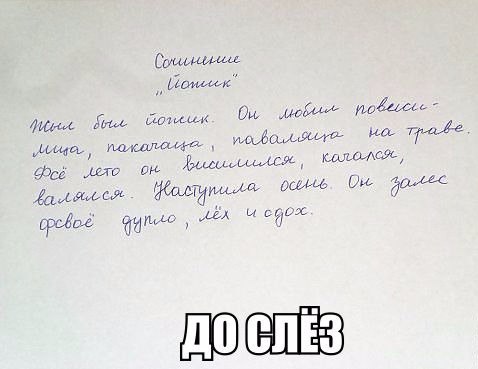 Сочинение
„Йожик"
Жыл был йожик. Он любил повеси-
лица, пакачаца, паваляца на траве.
Фсё лето он висилился, качался,
валялся. Наступила осень. Он залес
фсваё дупло, лёх и сдох.
ДО СЛЁЗ